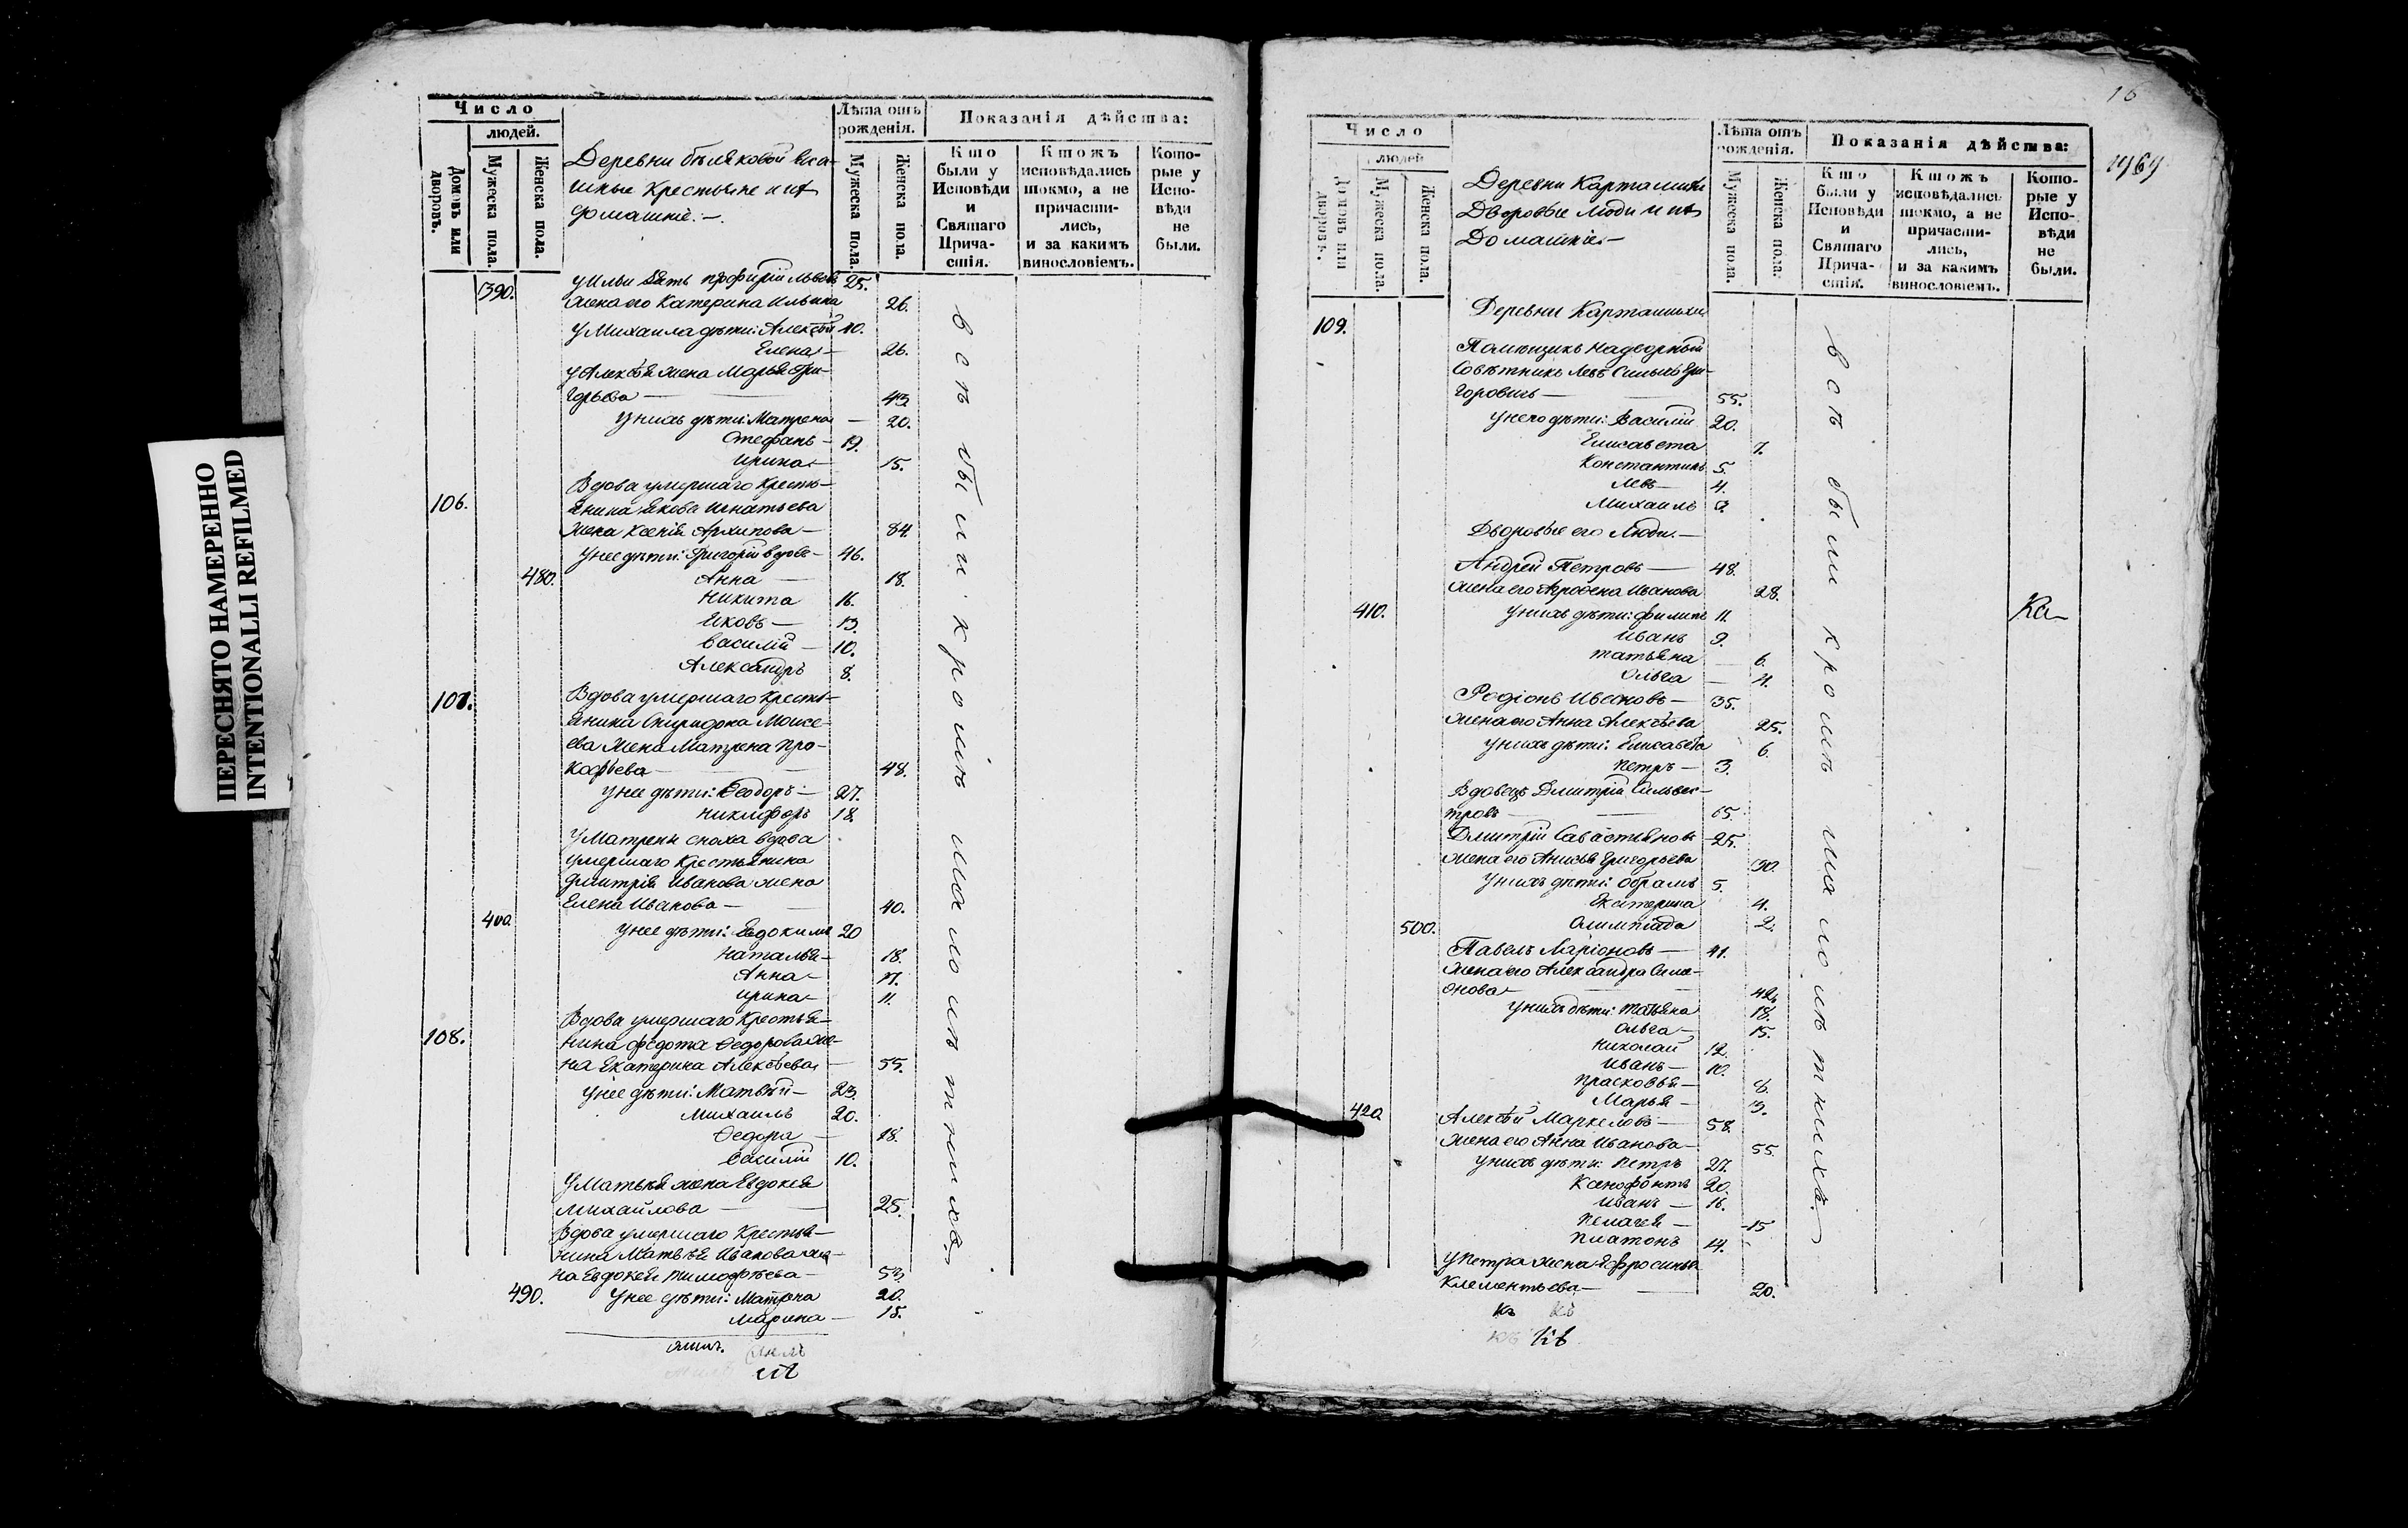 ПЕРЕСНЯТО НАМЕРЕННО
INTENTIONALLI REFILMED
Число
людей.
Домовъ или дворовъ.
Мужеска пола.
Женска пола.
Деревни Бѣляковой
Крестьяне и ихъ
домашніе.—
Лѣта отъ рожденія.
Мужеска пола.
Женска пола.
Показанія дѣйства:
Кто были у Исповѣди и Святаго Причастія.
Ктожъ исповѣдались токмо, а не причастились, и за какимъ винословіемъ.
Которые у Исповѣди не были.
всѣ были кромѣ малолѣтнихъ
390. у Ильи зять Профирій Львовъ 25.
жена его Катерина Ильина 26.
у Михаила дѣти: Алексѣй 40.
Елена— 26.
у Алексѣя жена Марья Гри-
горьева— 43.
у нихъ дѣти: Матрена— 20.
Стефанъ— 19.
Ирина— 15.
Вдова умершаго Кресть-
106. янина Якова Игнатьева
жена Ксенія Архипова— 84.
у нее дѣти: Григорій вдовъ— 46.
480. Анна— 18.
Никита 16.
Яковъ— 13.
Василій— 10.
Александръ 8.
107. Вдова умершаго Кресть-
янина Спиридона Моисе-
ева жена Матрена Про-
кофьева— 48.
у нее дѣти: Ѳеодоръ— 27.
Никифоръ 18.
у Матрены сноха вдова
умершаго Крестьянина
Дмитрія Иванова жена
Елена Иванова— 40.
400. у нее дѣти: Евдокимъ 20
Наталья— 18.
Анна— 17.
Ирина— 11.
Вдова умершаго Крестья-
108. нина Федота Ѳедорова же-
на Екатерина Алексѣева— 55.
у нее дѣти: Матвѣй— 23.
Михаилъ 20.
Ѳедора— 18.
Василій 10.
у Матвѣя жена Евдокея
Михайлова— 25.
Вдова умершаго Крестья-
нина Матвѣя Иванова же-
на Евдокея Тимофѣева— 53.
490. у нее дѣти: Матрена 20.
Марина— 15.
16
1969
Число
людей
Домовъ или дворовъ.
Мужеска пола.
Женска пола.
Деревни Карташихи
Дворовые люди и ихъ
Домашніе—
Лѣта отъ рожденія.
Мужеска пола.
Женска пола.
Показанія дѣйства:
Кто были у Исповѣди и Святаго Причастія.
Ктожъ исповѣдались токмо, а не причастились, и за какимъ винословіемъ.
Которые у Исповѣди не были.
всѣ были кромѣ малолѣтнихъ.
Деревни Карташихи
109.
Помѣщикъ Надворный
Совѣтникъ Левъ Гри-
горовичъ— 55.
у него дѣти: Василій 20.
Елисавета 7.
Константинъ 5.
Левъ— 4.
Михаилъ
Дворовые его Люди.—
Андрей Петровъ— 48.
жена его Иванова 28.
410. у нихъ дѣти: Филипъ 11.
Иванъ 9.
Татьяна— 6.
Ольга— 4.
Родіонъ Ивановъ— 35.
жена его Анна Алексѣева 25.
у нихъ дѣти: Елисавета 6.
Петръ— 3.
Вдовецъ Дмитрій Сильвес-
тровъ— 65.
Дмитрій Савастьяновъ— 25.
жена его Анисья Григорьева 30.
у нихъ дѣти: Абрамъ 5.
Екатерина 4.
500. Олимпіада 2.
Павелъ Ларіоновъ— 41.
жена его Александра Симо-
онова— 42.
у нихъ дѣти: Татьяна 18.
Ольга— 15.
Николай 12.
Иванъ— 10.
Прасковья— 8.
Марья— 3.
420. Алексѣй Маркеловъ— 58.
жена его Анна Иванова— 55.
у нихъ дѣти: Петръ 27.
Ксенофонтъ 20.
Иванъ— 16.
Пелагея— 15
Платонъ 14.
у Петра жена Ефросинья
Клементьева— 20.
Ка—